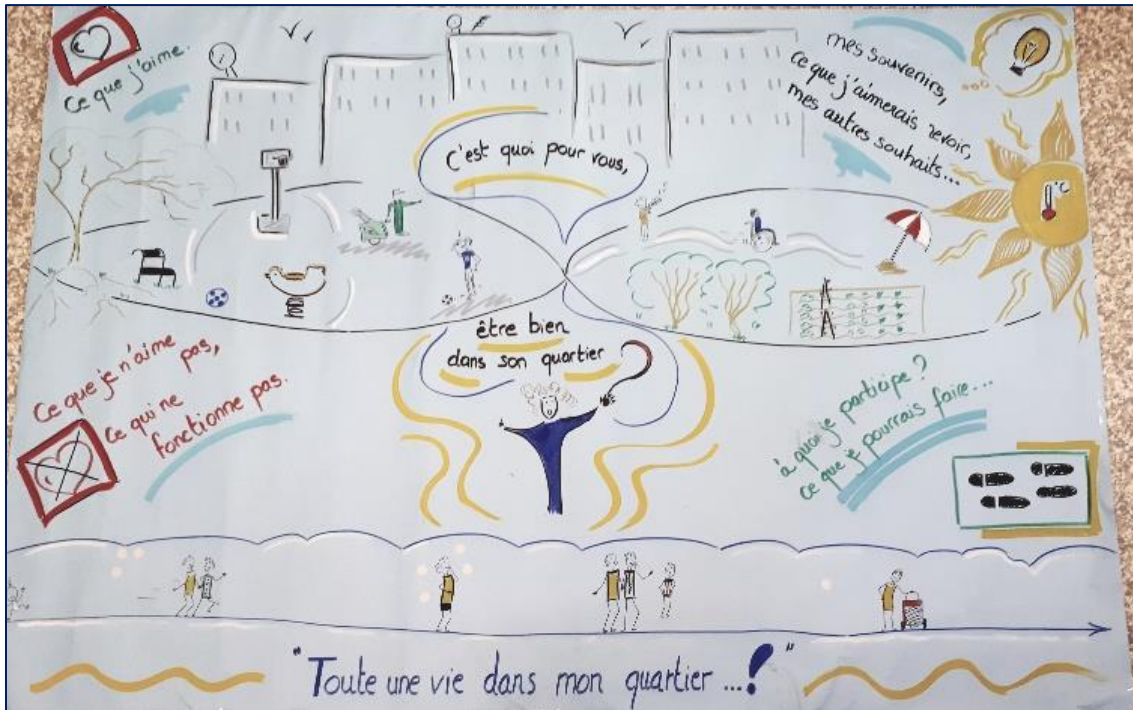 Ce que j'aime.
mes souvenirs,
ce que j'aimerais revoir,
mes autres souhaits...
°C
c'est quoi pour vous,
être bien
dans son quartier
?
Ce que je n'aime pas,
Ce qui ne
fonctionne pas.
à quoi je participe ?
ce que je pourrais faire...
"Toute une vie dans mon quartier ...!"